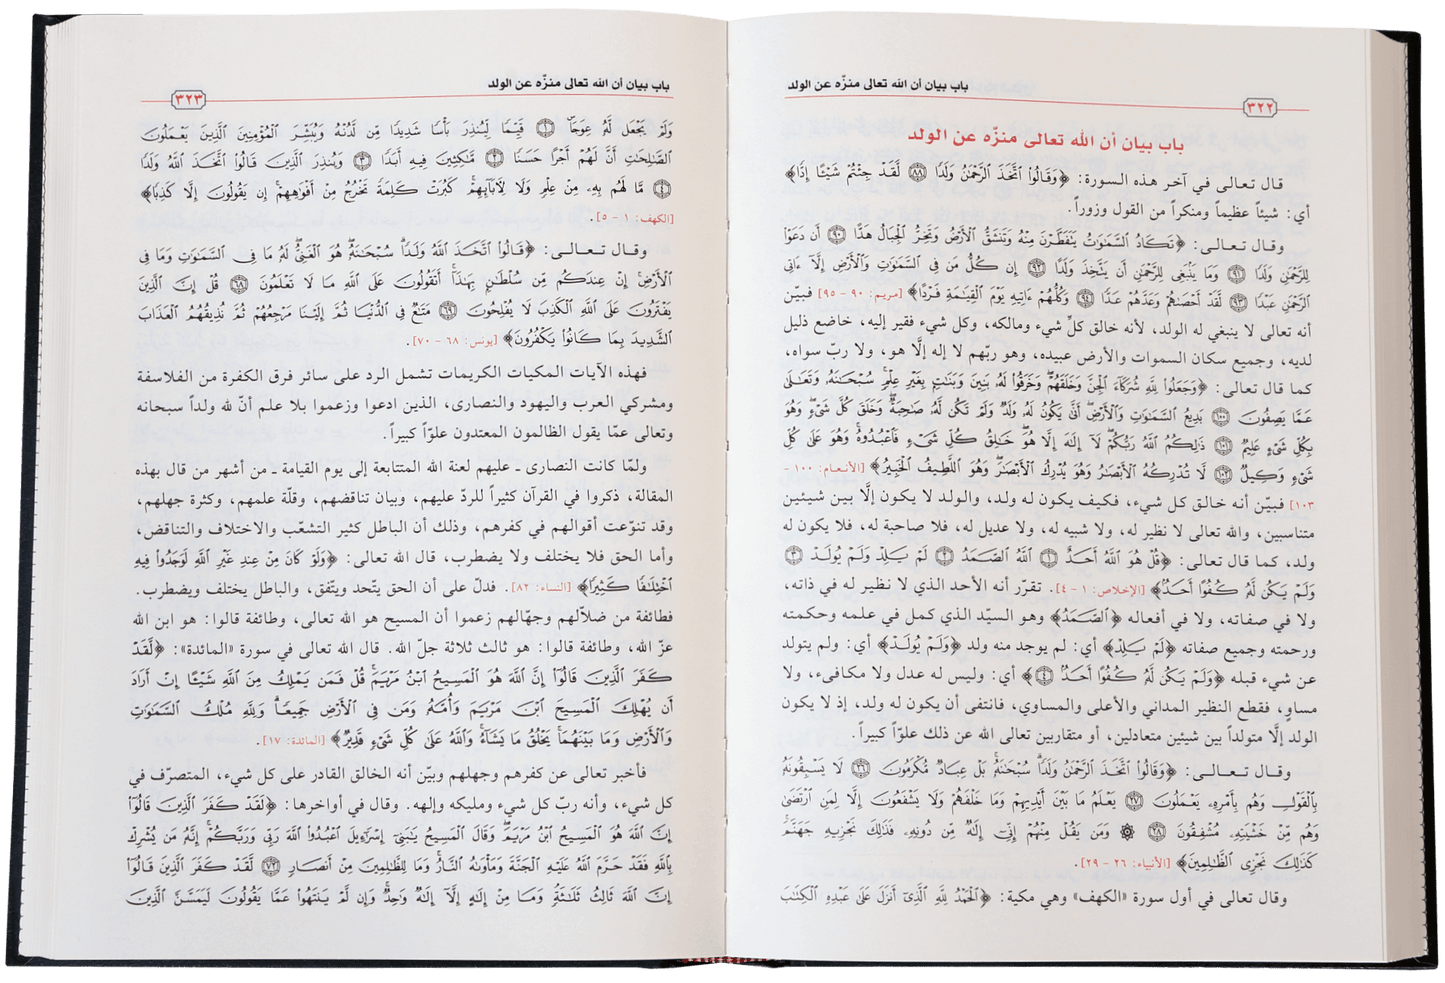 باب بيان أن الله تعالى منزّه عن الولد
٣٢٢
باب بيان أن الله تعالى منزّه عن الولد
قال تعالى في آخر هذه السورة: ﴿وَقَالُوا۟ ٱتَّخَذَ ٱلرَّحْمَٰنُ وَلَدًا ۝٨٨ لَّقَدْ جِئْتُمْ شَيْـًٔا إِدًّا﴾
أي: شيئاً عظيماً ومنكراً من القول وزوراً.
وقال تعالى: ﴿تَكَادُ ٱلسَّمَٰوَٰتُ يَتَفَطَّرْنَ مِنْهُ وَتَنشَقُّ ٱلْأَرْضُ وَتَخِرُّ ٱلْجِبَالُ هَدًّا ۝٩٠ أَن دَعَوْا۟
لِلرَّحْمَٰنِ وَلَدًا ۝٩١ وَمَا يَنۢبَغِى لِلرَّحْمَٰنِ أَن يَتَّخِذَ وَلَدًا ۝٩٢ إِن كُلُّ مَن فِى ٱلسَّمَٰوَٰتِ وَٱلْأَرْضِ إِلَّآ ءَاتِى
ٱلرَّحْمَٰنِ عَبْدًا ۝٩٣ لَّقَدْ أَحْصَىٰهُمْ وَعَدَّهُمْ عَدًّا ۝٩٤ وَكُلُّهُمْ ءَاتِيهِ يَوْمَ ٱلْقِيَٰمَةِ فَرْدًا﴾ [مريم: ٩٠ - ٩٥] فبيّن
أنه تعالى لا ينبغي له الولد، لأنه خالق كلِّ شيء ومالكه، وكل شيء فقير إليه، خاضع ذليل
لديه، وجميع سكان السموات والأرض عبيده، وهو ربّهم لا إله إلَّا هو، ولا ربّ سواه،
كما قال تعالى: ﴿وَجَعَلُوا۟ لِلَّهِ شُرَكَآءَ ٱلْجِنَّ وَخَلَقَهُمْ وَخَرَقُوا۟ لَهُۥ بَنِينَ وَبَنَٰتٍۭ بِغَيْرِ عِلْمٍ سُبْحَٰنَهُۥ وَتَعَٰلَىٰ
عَمَّا يَصِفُونَ ۝١٠٠ بَدِيعُ ٱلسَّمَٰوَٰتِ وَٱلْأَرْضِ أَنَّىٰ يَكُونُ لَهُۥ وَلَدٌ وَلَمْ تَكُن لَّهُۥ صَٰحِبَةٌ وَخَلَقَ كُلَّ شَىْءٍ وَهُوَ
بِكُلِّ شَىْءٍ عَلِيمٌ ۝١٠١ ذَٰلِكُمُ ٱللَّهُ رَبُّكُمْ لَآ إِلَٰهَ إِلَّا هُوَ خَٰلِقُ كُلِّ شَىْءٍ فَٱعْبُدُوهُ وَهُوَ عَلَىٰ كُلِّ
شَىْءٍ وَكِيلٌ ۝١٠٢ لَّا تُدْرِكُهُ ٱلْأَبْصَٰرُ وَهُوَ يُدْرِكُ ٱلْأَبْصَٰرَ وَهُوَ ٱللَّطِيفُ ٱلْخَبِيرُ﴾ [الأنعام: ١٠٠ -
١٠٣] فبيّن أنه خالق كل شيء، فكيف يكون له ولد، والولد لا يكون إلَّا بين شيئين
متناسبين، والله تعالى لا نظير له، ولا شبيه له، ولا عديل له، فلا صاحبة له، فلا يكون له
ولد، كما قال تعالى: ﴿قُلْ هُوَ ٱللَّهُ أَحَدٌ ۝١ ٱللَّهُ ٱلصَّمَدُ ۝٢ لَمْ يَلِدْ وَلَمْ يُولَدْ ۝٣
وَلَمْ يَكُن لَّهُۥ كُفُوًا أَحَدٌۢ﴾ [الإخلاص: ١ - ٤]. تقرّر أنه الأحد الذي لا نظير له في ذاته،
ولا في صفاته، ولا في أفعاله ﴿ٱلصَّمَدُ﴾ وهو السيّد الذي كمل في علمه وحكمته
ورحمته وجميع صفاته ﴿لَمْ يَلِدْ﴾ أي: لم يوجد منه ولد ﴿وَلَمْ يُولَدْ﴾ أي: ولم يتولد
عن شيء قبله ﴿وَلَمْ يَكُن لَّهُۥ كُفُوًا أَحَدٌۢ ۝٤﴾ أي: وليس له عدل ولا مكافىء، ولا
مساوٍ، فقطع النظير المداني والأعلى والمساوي، فانتفى أن يكون له ولد، إذ لا يكون
الولد إلَّا متولداً بين شيئين متعادلين، أو متقاربين تعالى الله عن ذلك علوّاً كبيراً.
وقال تعالى: ﴿وَقَالُوا۟ ٱتَّخَذَ ٱلرَّحْمَٰنُ وَلَدًا سُبْحَٰنَهُۥ بَلْ عِبَادٌ مُّكْرَمُونَ ۝٢٦ لَا يَسْبِقُونَهُۥ
بِٱلْقَوْلِ وَهُم بِأَمْرِهِۦ يَعْمَلُونَ ۝٢٧ يَعْلَمُ مَا بَيْنَ أَيْدِيهِمْ وَمَا خَلْفَهُمْ وَلَا يَشْفَعُونَ إِلَّا لِمَنِ ٱرْتَضَىٰ
وَهُم مِّنْ خَشْيَتِهِۦ مُشْفِقُونَ ۝٢٨ ۞ وَمَن يَقُلْ مِنْهُمْ إِنِّىٓ إِلَٰهٌ مِّن دُونِهِۦ فَذَٰلِكَ نَجْزِيهِ جَهَنَّمَ
كَذَٰلِكَ نَجْزِى ٱلظَّٰلِمِينَ﴾ [الأنبياء: ٢٦ - ٢٩].
وقال تعالى في أول سورة «الكهف» وهي مكية: ﴿ٱلْحَمْدُ لِلَّهِ ٱلَّذِىٓ أَنزَلَ عَلَىٰ عَبْدِهِ ٱلْكِتَٰبَ
باب بيان أن الله تعالى منزّه عن الولد
٣٢٣
وَلَمْ يَجْعَل لَّهُۥ عِوَجَا ۝١ قَيِّمًا لِّيُنذِرَ بَأْسًا شَدِيدًا مِّن لَّدُنْهُ وَيُبَشِّرَ ٱلْمُؤْمِنِينَ ٱلَّذِينَ يَعْمَلُونَ
ٱلصَّٰلِحَٰتِ أَنَّ لَهُمْ أَجْرًا حَسَنًا ۝٢ مَّٰكِثِينَ فِيهِ أَبَدًا ۝٣ وَيُنذِرَ ٱلَّذِينَ قَالُوا۟ ٱتَّخَذَ ٱللَّهُ وَلَدًا
۝٤ مَّا لَهُم بِهِۦ مِنْ عِلْمٍ وَلَا لِءَابَآئِهِمْ كَبُرَتْ كَلِمَةً تَخْرُجُ مِنْ أَفْوَٰهِهِمْ إِن يَقُولُونَ إِلَّا كَذِبًا﴾
[الكهف: ١ - ٥].
وقال تعالى: ﴿قَالُوا۟ ٱتَّخَذَ ٱللَّهُ وَلَدًا سُبْحَٰنَهُۥ هُوَ ٱلْغَنِىُّ لَهُۥ مَا فِى ٱلسَّمَٰوَٰتِ وَمَا فِى
ٱلْأَرْضِ إِنْ عِندَكُم مِّن سُلْطَٰنٍۭ بِهَٰذَآ أَتَقُولُونَ عَلَى ٱللَّهِ مَا لَا تَعْلَمُونَ ۝٦٨ قُلْ إِنَّ ٱلَّذِينَ
يَفْتَرُونَ عَلَى ٱللَّهِ ٱلْكَذِبَ لَا يُفْلِحُونَ ۝٦٩ مَتَٰعٌ فِى ٱلدُّنْيَا ثُمَّ إِلَيْنَا مَرْجِعُهُمْ ثُمَّ نُذِيقُهُمُ ٱلْعَذَابَ
ٱلشَّدِيدَ بِمَا كَانُوا۟ يَكْفُرُونَ﴾ [يونس: ٦٨ - ٧٠].
فهذه الآيات المكيات الكريمات تشمل الرد على سائر فرق الكفرة من الفلاسفة
ومشركي العرب واليهود والنصارى، الذين ادعوا وزعموا بلا علم أنّ لله ولداً سبحانه
وتعالى عمّا يقول الظالمون المعتدون علوّاً كبيراً.
ولمّا كانت النصارى ـ عليهم لعنة الله المتتابعة إلى يوم القيامة ـ من أشهر من قال بهذه
المقالة، ذكروا في القرآن كثيراً للردّ عليهم، وبيان تناقضهم، وقلّة علمهم، وكثرة جهلهم،
وقد تنوّعت أقوالهم في كفرهم، وذلك أن الباطل كثير التشعّب والاختلاف والتناقض،
وأما الحق فلا يختلف ولا يضطرب، قال الله تعالى: ﴿وَلَوْ كَانَ مِنْ عِندِ غَيْرِ ٱللَّهِ لَوَجَدُوا۟ فِيهِ
ٱخْتِلَٰفًا كَثِيرًا﴾ [النساء: ٨٢]. فدلّ على أن الحق يتّحد ويتّفق، والباطل يختلف ويضطرب.
فطائفة من ضلّالهم وجهّالهم زعموا أن المسيح هو الله تعالى، وطائفة قالوا: هو ابن الله
عزّ الله، وطائفة قالوا: هو ثالث ثلاثة جلّ الله. قال الله تعالى في سورة «المائدة»: ﴿لَّقَدْ
كَفَرَ ٱلَّذِينَ قَالُوٓا۟ إِنَّ ٱللَّهَ هُوَ ٱلْمَسِيحُ ٱبْنُ مَرْيَمَ قُلْ فَمَن يَمْلِكُ مِنَ ٱللَّهِ شَيْـًٔا إِنْ أَرَادَ
أَن يُهْلِكَ ٱلْمَسِيحَ ٱبْنَ مَرْيَمَ وَأُمَّهُۥ وَمَن فِى ٱلْأَرْضِ جَمِيعًا وَلِلَّهِ مُلْكُ ٱلسَّمَٰوَٰتِ
وَٱلْأَرْضِ وَمَا بَيْنَهُمَا يَخْلُقُ مَا يَشَآءُ وَٱللَّهُ عَلَىٰ كُلِّ شَىْءٍ قَدِيرٌ﴾ [المائدة: ١٧].
فأخبر تعالى عن كفرهم وجهلهم وبيّن أنه الخالق القادر على كل شيء، المتصرّف في
كل شيء، وأنه ربّ كل شيء ومليكه وإلهه. وقال في أواخرها: ﴿لَقَدْ كَفَرَ ٱلَّذِينَ قَالُوٓا۟
إِنَّ ٱللَّهَ هُوَ ٱلْمَسِيحُ ٱبْنُ مَرْيَمَ وَقَالَ ٱلْمَسِيحُ يَٰبَنِىٓ إِسْرَٰٓءِيلَ ٱعْبُدُوا۟ ٱللَّهَ رَبِّى وَرَبَّكُمْ إِنَّهُۥ مَن يُشْرِكْ
بِٱللَّهِ فَقَدْ حَرَّمَ ٱللَّهُ عَلَيْهِ ٱلْجَنَّةَ وَمَأْوَىٰهُ ٱلنَّارُ وَمَا لِلظَّٰلِمِينَ مِنْ أَنصَارٍ ۝٧٢ لَّقَدْ كَفَرَ ٱلَّذِينَ قَالُوٓا۟
إِنَّ ٱللَّهَ ثَالِثُ ثَلَٰثَةٍ وَمَا مِنْ إِلَٰهٍ إِلَّآ إِلَٰهٌ وَٰحِدٌ وَإِن لَّمْ يَنتَهُوا۟ عَمَّا يَقُولُونَ لَيَمَسَّنَّ ٱلَّذِينَ